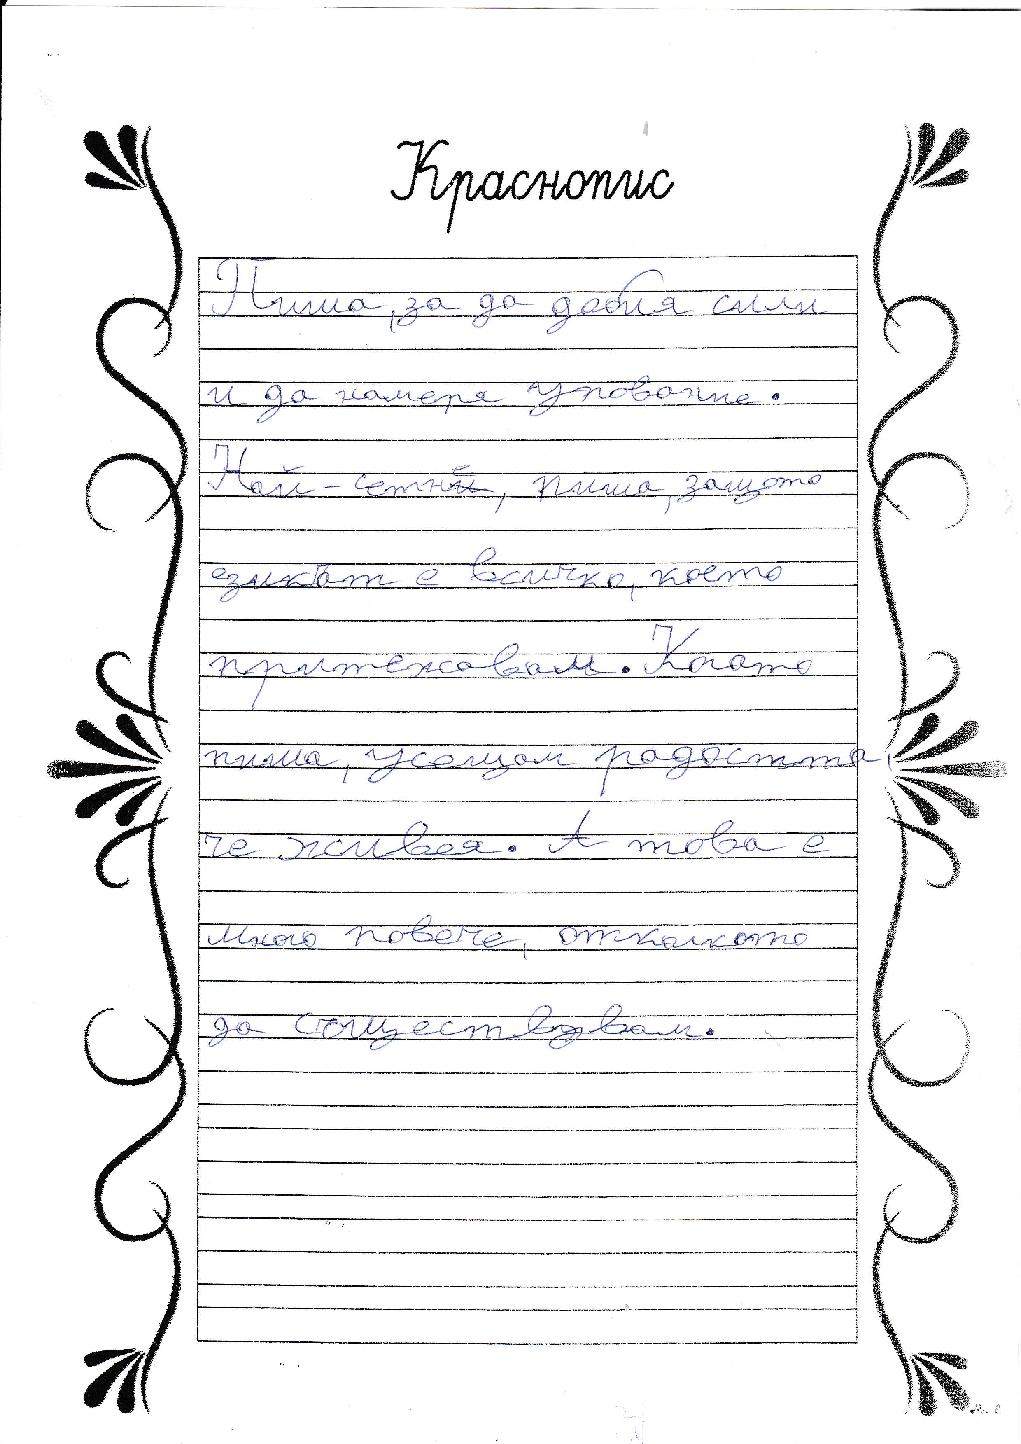 Краснопис
Пиша, за да добия сили
и да намеря упование.
Най-сетнй, пиша, защото
езикът е всичко, което
притежавам. Когато
пиша, усещам радостта,
че живея. А това е
много повече, отколкото
да съществувам.